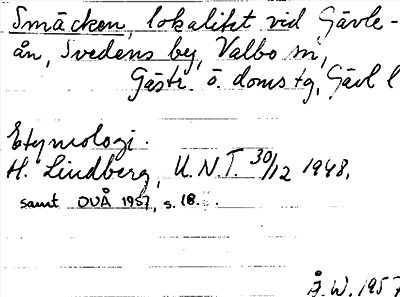 Smäcken, lokalitet vid Gävle-
ån, Svedens by, Valbo sn,
Gästr. ö. doms tg, Gävl l
Etymologi.
H. Lindberg, U.N.T. 30/12 1948,
samt OUÅ 1957, s. 18.
Å.W. 1957